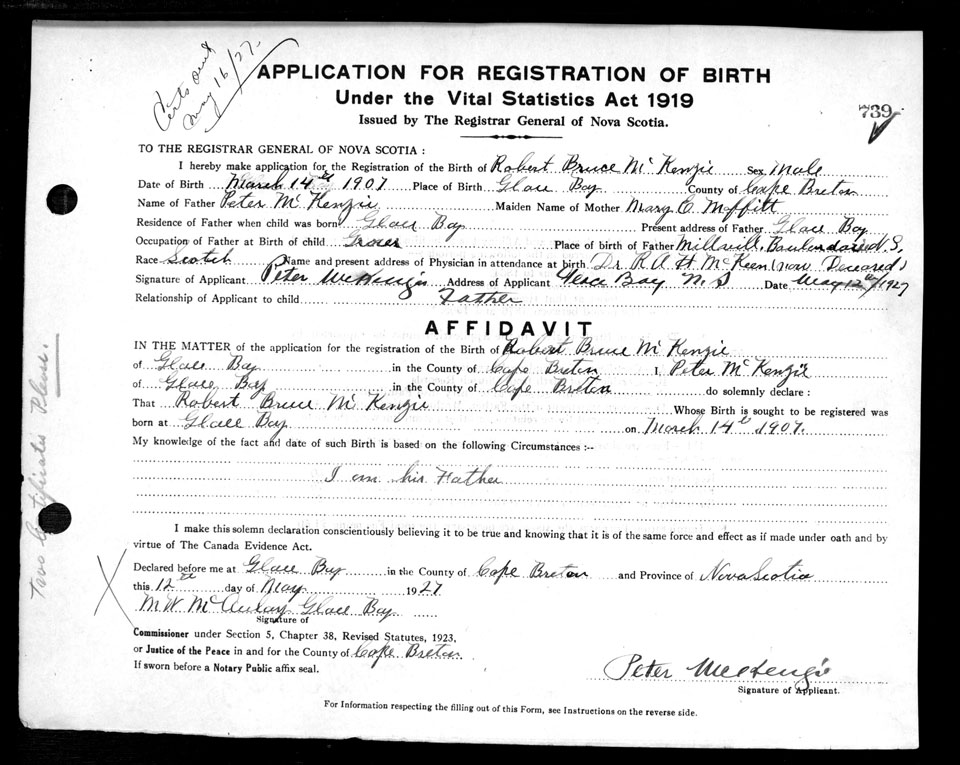 Certs sent
May 16/27.
APPLICATION FOR REGISTRATION OF BIRTH
Under the Vital Statistics Act 1919
Issued by The Registrar General of Nova Scotia.
739
TO THE REGISTRAR GENERAL OF NOVA SCOTIA :
I hereby make application for the Registration of the Birth of Robert Bruce McKenzie Sex Male
Date of Birth March 14th 1907 Place of Birth Glace Bay County of Cape Breton
Name of Father Peter McKenzie Maiden Name of Mother Mary C Moffitt
Residence of Father when child was born Glace Bay Present address of Father Glace Bay
Occupation of Father at Birth of child Grocer Place of Birth of Father Millvill, N.S.
Race Scotch Name and present address of Physician in attendance at birth Dr R A H McKeen (now Deceased)
Signature of Applicant Peter McKenzie Address of Applicant Glace Bay N.S Date May 12th/1927
Relationship of Applicant to child Father
AFFIDAVIT
IN THE MATTER of the application for the registration of the Birth of Robert Bruce McKenzie
of Glace Bay in the County of Cape Breton I, Peter McKenzie
of Glace Bay in the County of Cape Breton do solemnly declare :
That Robert Bruce McKenzie Whose Birth is sought to be registered was
born at Glace Bay on March 14th 1907.
My knowledge of the fact and date of such Birth is based on the following Circumstances :--
I am his Father
I make this solemn declaration conscientiously believing it to be true and knowing that it is of the same force and effect as if made under oath and by
virtue of The Canada Evidence Act.
Declared before me at Glace Bay in the County of Cape Breton and Province of Nova Scotia
this 12th day of May 1927
M W McAulay Glace Bay
Signature of
Commissioner under Section 5, Chapter 38, Revised Statutes, 1923,
or Justice of the Peace in and for the County of Cape Breton
If sworn before a Notary Public affix seal.
Peter McKenzie
Signature of Applicant.
For Information respecting the filling out of this Form, see Instructions on the reverse side.
Two Certificates Please.